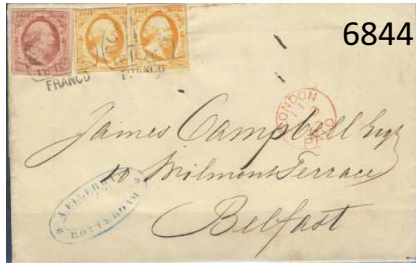 6844
FRANCO
FRANCO
LONDON
PD
James Campbell Esq
10 Wilmont Terrace
Belfast
ROTTERDAM